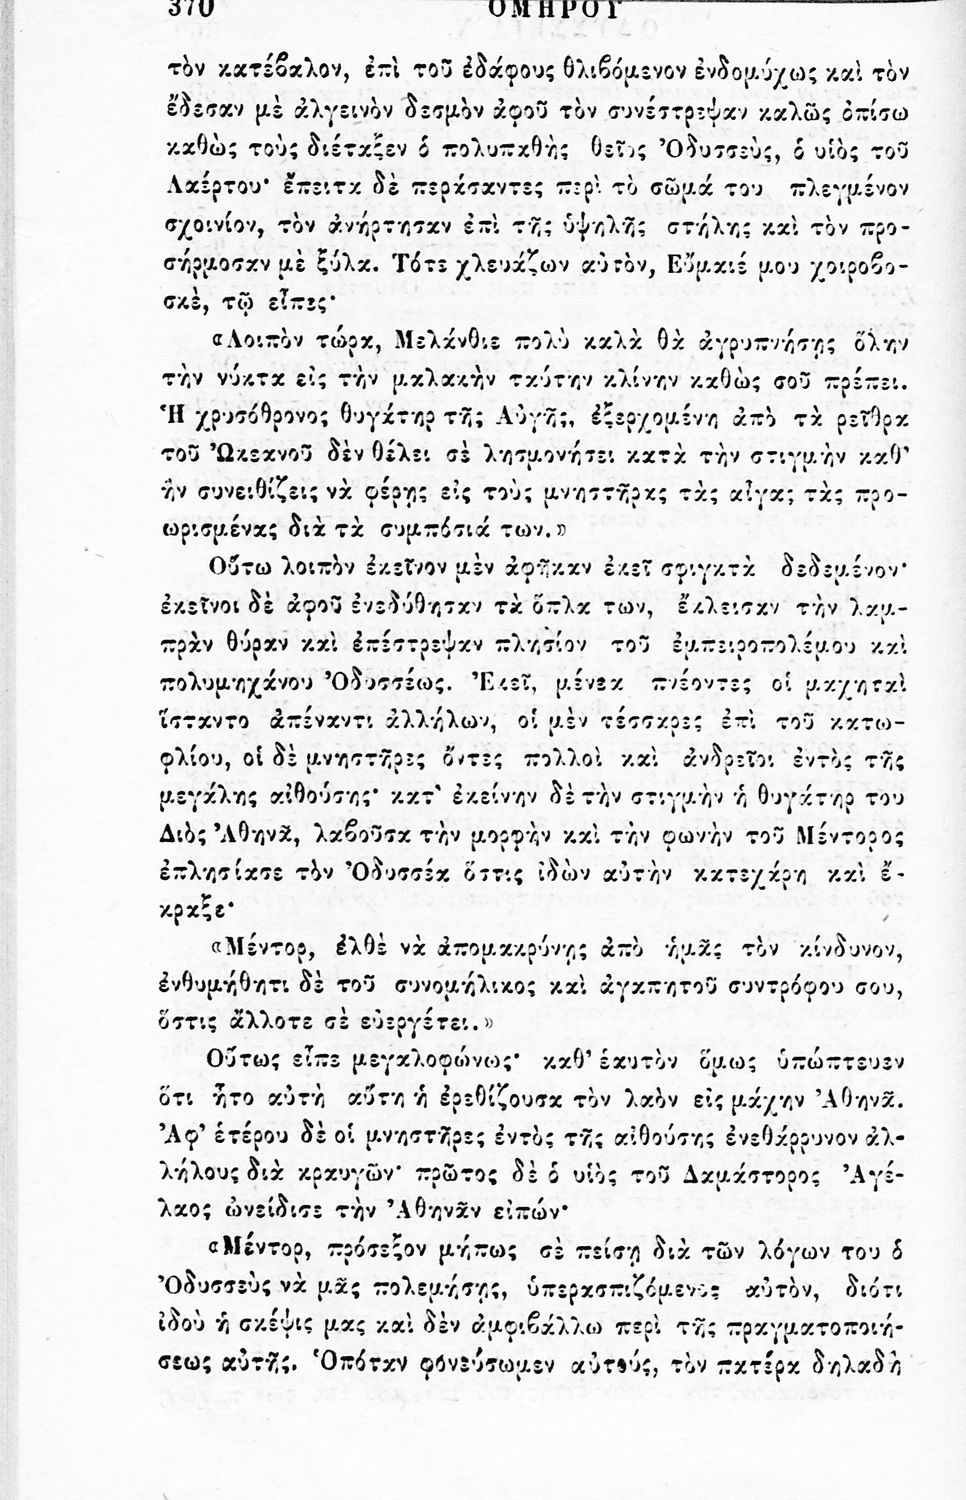 370 ΟΜΗΡΟΥ
τὸν κατέβαλον, ἐπὶ τοῦ ἐδάφους θλιβόμενον ἐνδομύχως καὶ τὸν
ἔδεσαν μὲ ἀλγεινὸν δεσμὸν ἀφοῦ τὸν συνέστρεψαν καλῶς ὀπίσω
καθὼς τοὺς διέταξεν ὁ πολυπαθὴς θεῖος Ὀδυσσεὺς, ὁ υἱὸς τοῦ
Λαέρτου· ἔπειτα δὲ περάσαντες περὶ τὸ σῶμά του πλεγμένον
σχοινίον, τὸν ἀνήρτησαν ἐπὶ τῆς ὑψηλῆς στήλης καὶ τὸν προ-
σήρμοσαν μὲ ξύλα. Τότε χλευάζων αὐτὸν, Εὔμαιέ μου χοιροβο-
σκὲ, τῷ εἶπες·
«Λοιπὸν τώρα, Μελάνθιε πολὺ καλὰ θὰ ἀγρυπνήσῃς ὅλην
τὴν νύκτα εἰς τὴν μαλακὴν ταύτην κλίνην καθὼς σοῦ πρέπει.
Ἡ χρυσόθρονος θυγάτηρ τῆς Αὐγῆς, ἐξερχομένη ἀπὸ τὰ ρεῖθρα
τοῦ Ὠκεανοῦ δὲν θέλει σὲ λησμονήσει κατὰ τὴν στιγμὴν καθ’
ἣν συνειθίζεις νὰ φέρῃς εἰς τοὺς μνηστῆρας τὰς αἶγας τὰς προ-
ωρισμένας διὰ τὰ συμπόσιά των.»
Οὕτω λοιπὸν ἐκεῖνον μὲν ἀφῆκαν ἐκεῖ σφιγκτὰ δεδεμένον·
ἐκεῖνοι δὲ ἀφοῦ ἐνεδύθησαν τὰ ὅπλα των, ἔκλεισαν τὴν λαμ-
πρὰν θύραν καὶ ἐπέστρεψαν πλησίον τοῦ ἐμπειροπολέμου καὶ
πολυμηχάνου Ὀδυσσέως. Ἐκεῖ, μένεα πνέοντες οἱ μαχηταὶ
ἵσταντο ἀπέναντι ἀλλήλων, οἱ μὲν τέσσαρες ἐπὶ τοῦ κατω-
φλίου, οἱ δὲ μνηστῆρες ὄντες πολλοὶ καὶ ἀνδρεῖοι ἐντὸς τῆς
μεγάλης αἰθούσης· κατ’ ἐκείνην δὲ τὴν στιγμὴν ἡ θυγάτηρ του
Διὸς Ἀθηνᾶ, λαβοῦσα τὴν μορφὴν καὶ τὴν φωνὴν τοῦ Μέντορος
ἐπλησίασε τὸν Ὀδυσσέα ὅστις ἰδὼν αὐτὴν κατεχάρη καὶ ἔ-
κραξε·
«Μέντορ, ἐλθὲ νὰ ἀπομακρύνῃς ἀπὸ ἡμᾶς τὸν κίνδυνον,
ἐνθυμήθητι δὲ τοῦ συνομήλικος καὶ ἀγαπητοῦ συντρόφου σου,
ὅστις ἄλλοτε σὲ εὐεργέτει.»
Οὕτως εἶπε μεγαλοφώνως· καθ’ ἑαυτὸν ὅμως ὑπώπτευεν
ὅτι ἦτο αὐτὴ αὕτη ἡ ἐρεθίζουσα τὸν λαὸν εἰς μάχην Ἀθηνᾶ.
Ἀφ’ ἑτέρου δὲ οἱ μνηστῆρες ἐντὸς τῆς αἰθούσης ἐνεθάρρυνον ἀλ-
λήλους διὰ κραυγῶν· πρῶτος δὲ ὁ υἱὸς τοῦ Δαμάστορος Ἀγέ-
λαος ὠνείδισε τὴν Ἀθηνᾶν εἰπών·
«Μέντορ, πρόσεξον μήπως σὲ πείσῃ διὰ τῶν λόγων του ὁ
Ὀδυσσεὺς νὰ μᾶς πολεμήσῃς, ὑπερασπιζόμενος αὐτὸν, διότι
ἰδοὺ ἡ σκέψις μας καὶ δὲν ἀμφιβάλλω περὶ τῆς πραγματοποιή-
σεως αὐτῆς. Ὁπόταν φονεύσωμεν αὐτοὺς, τὸν πατέρα δηλαδὴ